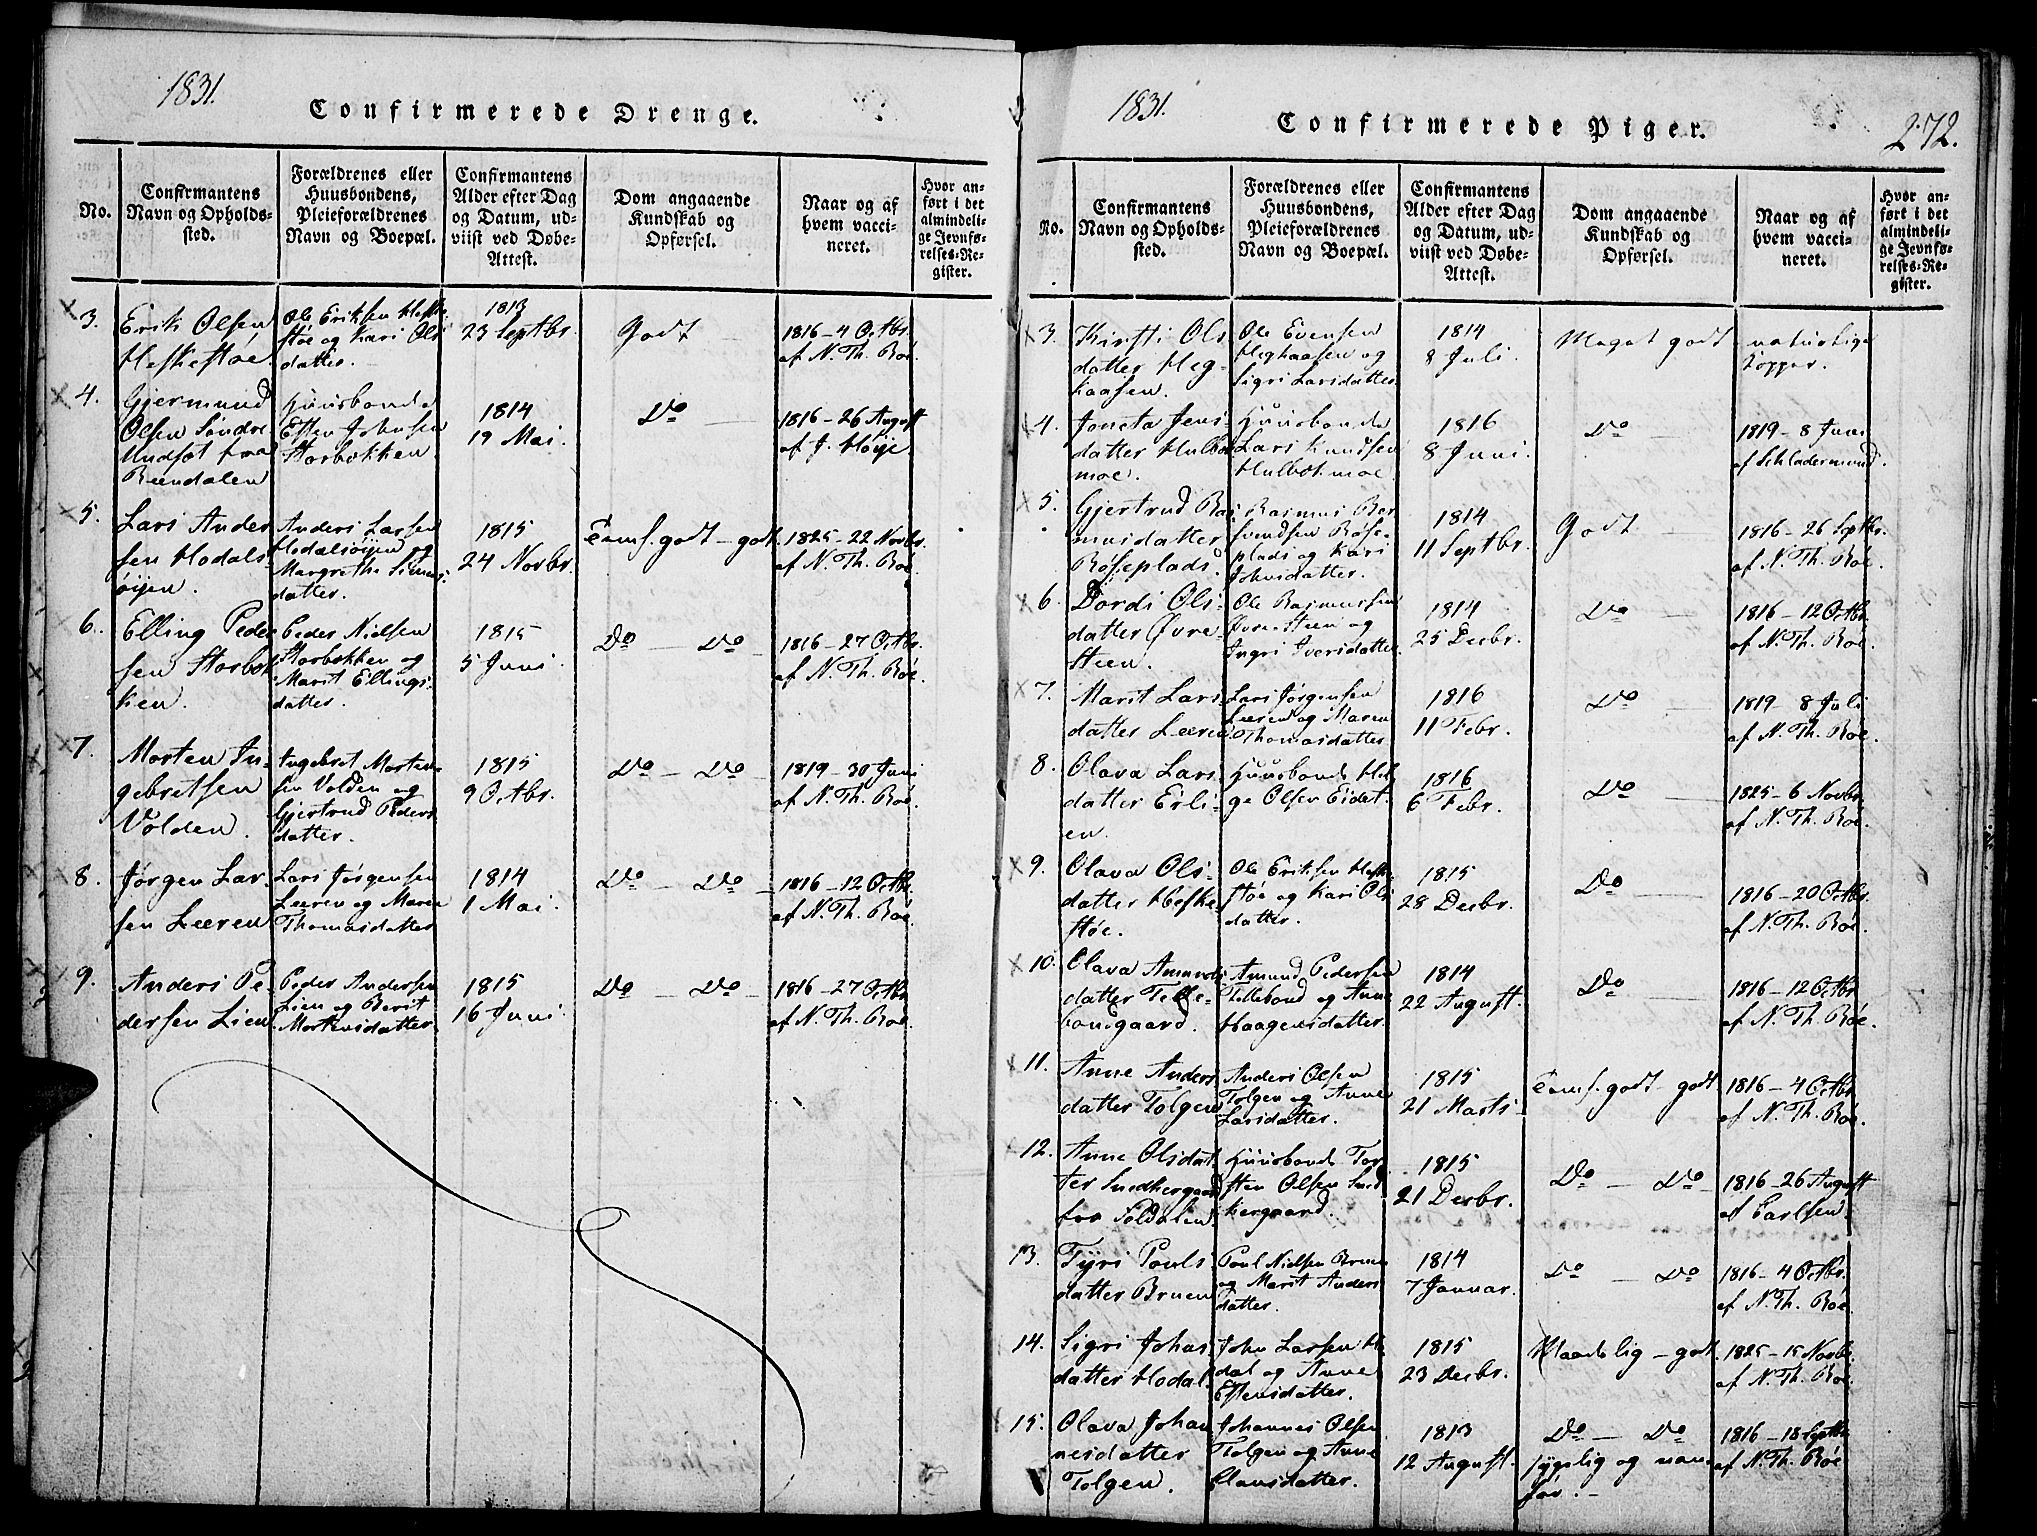 1831.
Confirmerede Drenge.
No.
Confirmantens
Navn og Opholds-
sted.
Forældrenes eller
Huusbondens,
Pleieforældrenes
Navn og Boepæl.
Confirmantens
Alder efter Dag
og Datum, ud-
viist ved Døbe-
Attest.
Dom angaaende
Kundskab og
Opførsel.
Naar og af
hvem vacci-
neret.
Hvor an-
ført i det
almindeli-
ge Jevnfø-
relses-Re-
gister.
3.
Erik Olsen
Heskestøe
Ole Eriksen Heske-
støe og Kari Ols
datter.
1813
23 Septbr.
Godt
1816 - 4 Octbr.
af N. Th. Røe.
4.
Gjermund
Olsen Søndre
Undset fra
Reendalen
Huusbonde
Esten Johnsen
Storbekken
1814
19 Mai.
Do
1816 - 26 August
af J. Høye
5.
Lars Ander
sen Hodals-
øijen.
Anders Larsen
Hodalsøijen og
Margrethe Simens
datter.
1815
24 Novbr.
Tems. godt - godt.
1825 - 22 Novbr.
af N. Th. Røe.
6.
Elling Peder
sen Storbek
ken.
Peder Nielsen
Storbekken og
Marit Ellings-
datter.
1815
5 Juni.
Do - Do
1816 - 27 Octbr.
af N. Th. Røe.
7.
Morten In-
gebretsen
Volden.
Ingebret Morten-
sen Volden og
Gjertrud Peders
datter.
1815
9 Octbr.
Do - Do
1819 - 30 Juni
af N. Th. Røe.
8.
Jørgen Lar-
sen Leeren
Lars Jørgensen
Leeren og Maren
Thomasdatter
1814
1 Mai.
Do - Do
1816 - 12 Octbr.
af N. Th. Røe.
9.
Anders Pe-
dersen Lien
Peder Andersen
Lien og Berit
Mortensdatter
1815
16 Juni.
Do - Do
1816 - 27 Octbr
af N. Th. Røe.
1831.
Confirmerede Piger.
272.
No.
Confirmantens
Navn og Opholds-
sted.
Forældrenes eller
Huusbondens,
Pleieforældrenes
Navn og Boepæl.
Confirmantens
Alder efter Dag
og Datum, ud-
viist ved Døbe-
Attest.
Dom angaaende
Kundskab og
Opførsel.
Naar og af
hvem vacci-
neret.
Hvor an-
ført i det
almindeli-
ge Jevnfø-
relses-Re-
gister.
3.
Kirsti Ols
datter Heg-
haasen.
Ole Evensen
Heghaasen og
Sigri Larsdatter
1814
8 Juli.
Meget godt
naturlige
Kopper.
4.
Joneta Jens
datter Hulbek
moe.
Huusbonde
Lars Knudsen
Hulbekmoe
1816
8 Juni.
Do
1819 - 8 Juni
af Schladermund.
5.
Gjertrud Ras
musdatter
Røseplads.
Rasmus Ber
svendsen Røse-
plads og Kari
Johnsdatter.
1814
11 Septbr.
Godt
1816 - 26 Septbr.
af N. Th. Røe.
6.
Dordi Ols-
datter Øvre-
Steen.
Ole Rasmussen
Øvre Steen og
Ingri Iversdatter
1814
25 Decbr.
Do
1816 - 12 Octbr
af N. Th. Røe.
7.
Marit Lars
datter Leeren
Lars Jørgensen
Leeren og Maren
Thomasdatter
1816
11 Febr.
Do
1819 - 8 Juli
af N. Th. Røe.
8.
Olava Lars
datter Erli-
en.
Huusbonde Hel
ge Olsen Eidet.
1816
6 Febr.
Do
1825 - 6 Novbr
af N. Th. Røe.
9.
Olava Ols-
datter Heske-
støe.
Ole Eriksen Heske-
støe og Kari Ols
datter.
1815
28 Decbr.
Do
1816 - 20 Octbr.
af N. Th. Røe.
10.
Olava Amunds
datter Telle-
bonsgaard.
Amund Pedersen
Tellebond og Anne
Haagensdatter.
1814
22 August.
Do
1816 - 12 Octbr
af N. Th. Røe.
11.
Anne Anders
datter Tolgen
Anders Olsen
Tolgen og Anne
Larsdatter.
1815
21 Marts
Tems. godt - godt
1816 - 4 Octbr
af N. Th. Røe.
12.
Anne Olsdat
ter Snedkergaard
fra Soldalen
Huusbonde Tor
sten Olsen Sned
kergaard.
1815
21 Decbr.
Do - Do
1816 - 26 August
af Carlsen.
13.
Tyri Pouls
datter Bruen
Poul Nielsen Bruen
og Marit Anders
datter.
1814
7 Januar.
Do - Do
1816 - 4 Octbr.
af N. Th. Røe.
14.
Sigri Johns
datter Hodal
John Larsen Ho
dal og Anne
Estensdatter.
1815
23 Decbr.
Maadelig - godt
1825 - 15 Novbr.
af N. Th. Røe.
15.
Olava Johan
nesdatter
Tolgen.
Johannes Olsen
Tolgen og Anne
Clausdatter.
1813
12 August.
Do - Do
sygelig og van-
før.
1816 - 18 Septbr
af N. Th. Røe